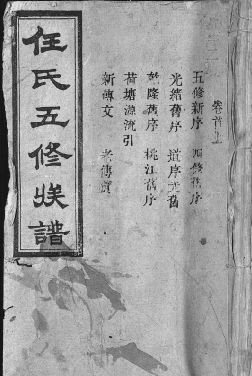 卷首上
五修新序 四修舊序
光緒舊序 道序
乾隆舊序 桃江舊序
荷塘源流引
新傳文 老傳贊
任氏五修族譜